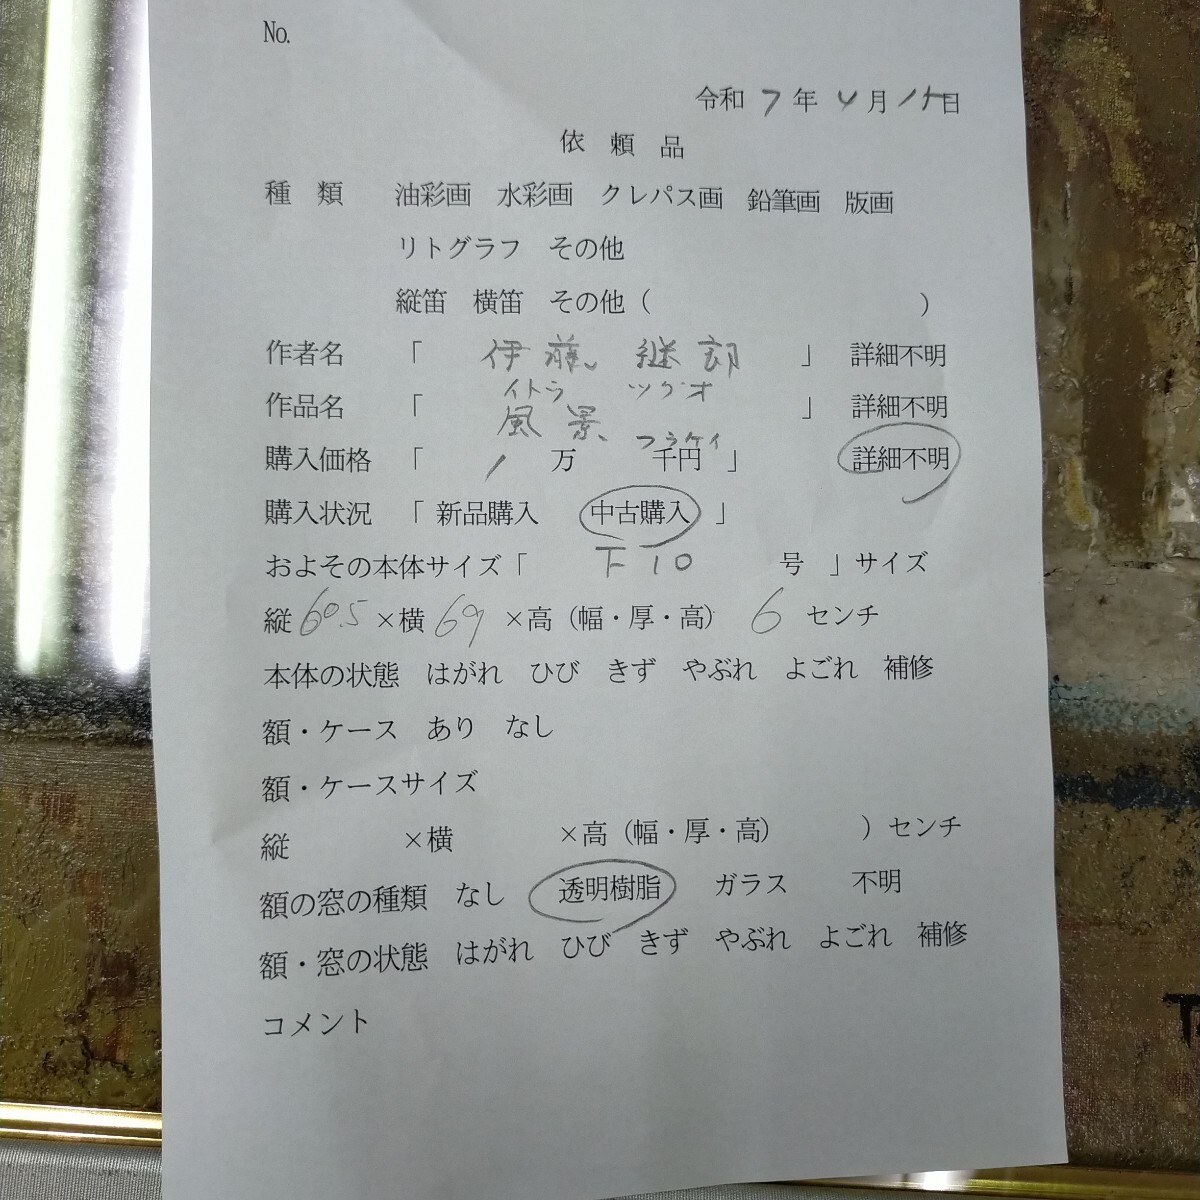 No.
令和 7 年 4 月 15日
依 頼 品
種 類 油彩画 水彩画 クレパス画 鉛筆画 版画
リトグラフ その他
縦笛 横笛 その他 ( )
作者名 「 伊藤 継郎 」 詳細不明
イトウ ツグオ
作品名 「 風景 」 詳細不明
フウケイ
購入価格 「 万 千円 」 詳細不明
購入状況 「 新品購入 中古購入 」
およその本体サイズ「 F10 号 」サイズ
縦 60.5 ×横 69 ×高 (幅・厚・高) 6 センチ
本体の状態 はがれ ひび きず やぶれ よごれ 補修
額・ケース あり なし
額・ケースサイズ
縦 ×横 ×高 (幅・厚・高) ) センチ
額の窓の種類 なし 透明樹脂 ガラス 不明
額・窓の状態 はがれ ひび きず やぶれ よごれ 補修
コメント